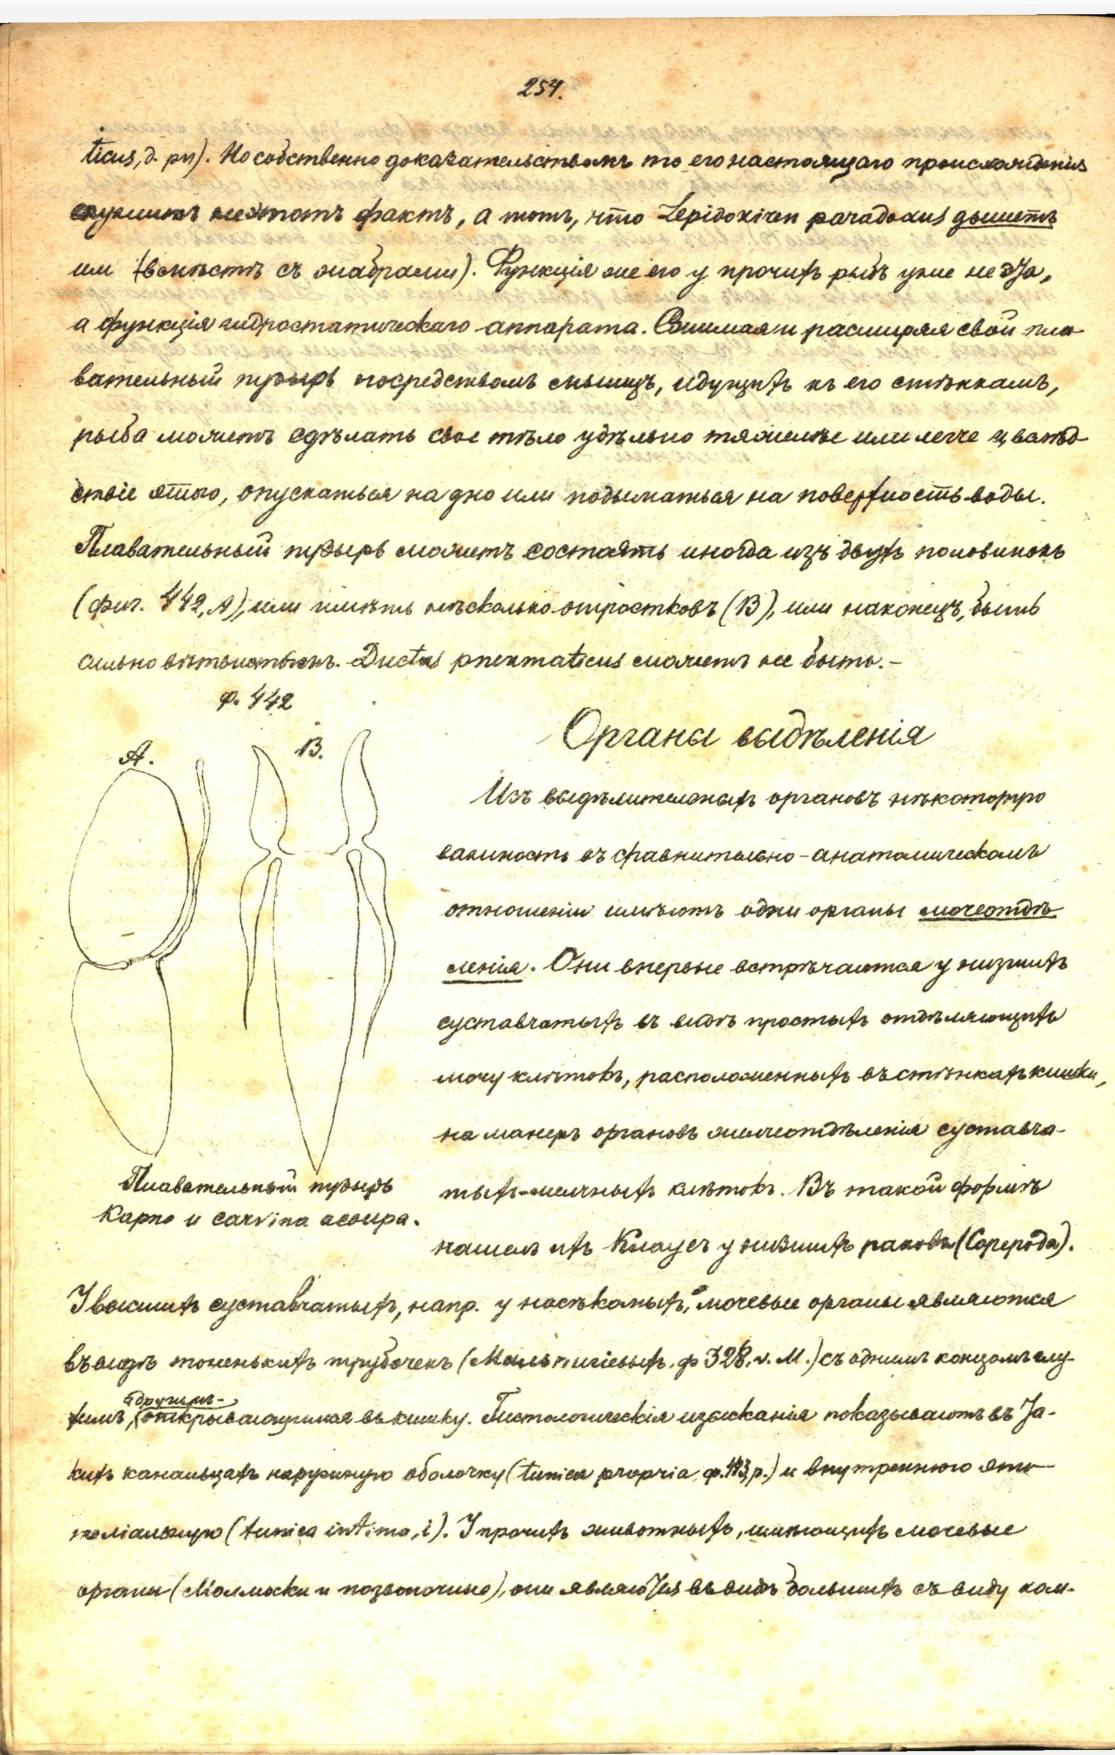 254.
ticus, d. pn). Но собственно доказательствомъ то его настоящаго происхожденія
служитъ не этотъ фактъ, а тотъ, что Lepidosiren paradoxus дышетъ
им (вмѣстѣ съ жабрами). Функція же его у прочихъ рыбъ уже не эта,
а функція гидростатическаго аппарата. Сжимая и расширяя свой пла-
вательный пузырь посредствомъ мышцъ, идущихъ къ его стѣнкамъ,
рыба можетъ сдѣлать свое тѣло удѣльно тяжелѣе или легче и
этого, опускаться на дно или подыматься на поверхность воды.
Плавательный пузырь можетъ состоять иногда изъ двухъ половинокъ
(фиг. 442, А), или имѣть нѣсколько отростковъ (В), или наконецъ, быть
сильно вѣтвистымъ. Ductus pneumaticus можетъ не быть.—
ф. 442
А.
В.
Плавательный пузырь
Карпа и
Органы выдѣленія
Изъ выдѣлительныхъ органовъ нѣкоторую
важность въ сравнительно-анатомическомъ
отношеніи имѣютъ одни органы мочеотдѣ-
ленія. Они впервые встрѣчаются у низшихъ
суставчатыхъ въ видѣ простыхъ отдѣляющихъ
мочу клѣтокъ, расположенныхъ въ стѣнкахъ кишки,
на манеръ органовъ желчеотдѣленія суставча-
тыхъ-желчныхъ клѣтокъ. Въ такой формѣ
нашелъ ихъ Клаусъ у низшихъ раковъ (Copepoda).
У высшихъ суставчатыхъ, напр. у насѣкомыхъ, мочевые органы являются
въ видѣ тоненькихъ трубочекъ (Мальпигіевыхъ, ф 328, v. М.) съ однимъ концомъ глу-
химъ, другимъ- открывающимся въ кишку. Гистологическія изысканія показываютъ въ та-
кихъ канальцахъ наружную оболочку (tunica propria, р.) и внутреннюю эпи-
теліальную (tunica intima, i). У прочихъ животныхъ, имѣющихъ мочевые
органы (Моллюски и позвоночные), они являются въ видѣ большихъ съ виду ком-